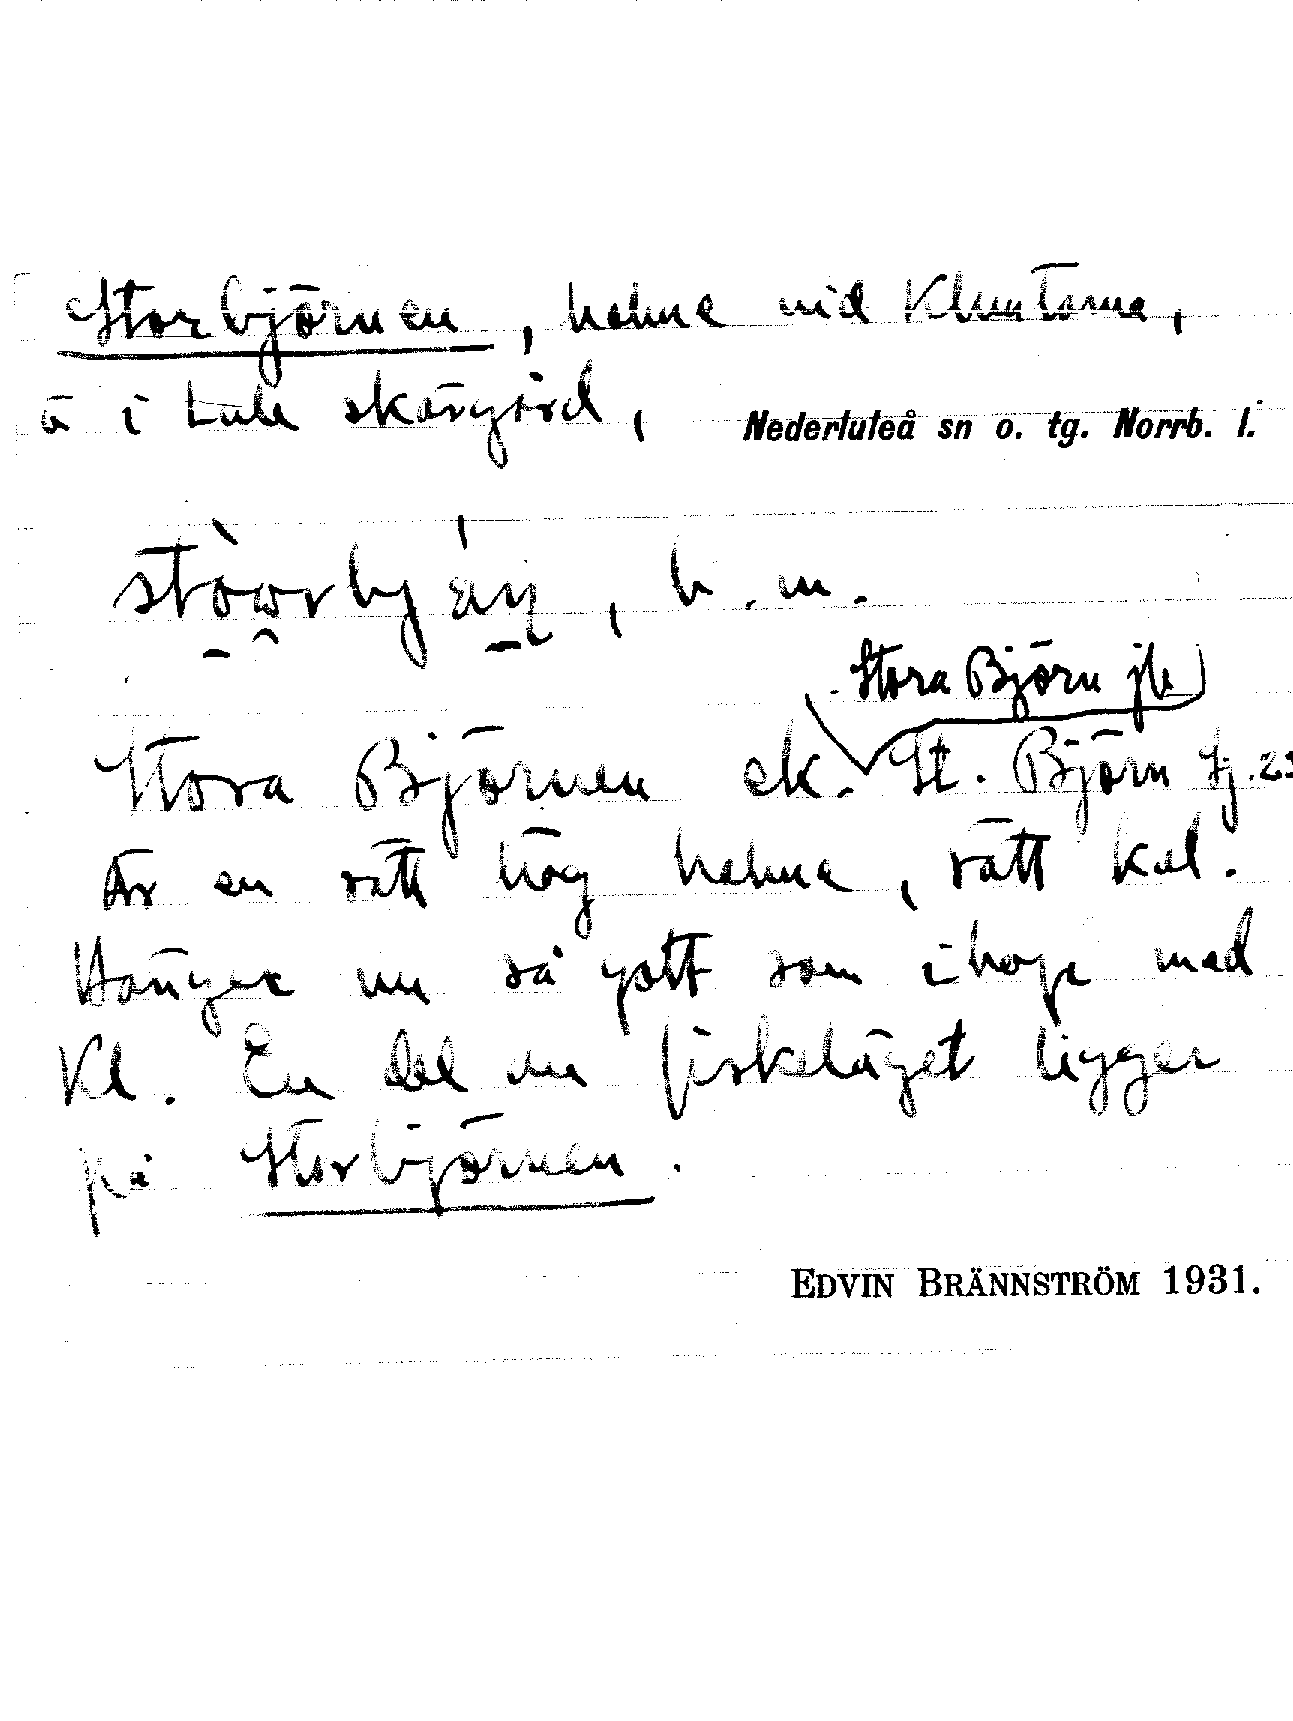 Storbjörnen, holme vid Kluntarna,
ö i Lule skärgård, Nederluleå sn o. tg. Norrb. l.
b. m.
Stora Björn jb
Stora Björnen ek. St. Björn Sj. 23
Är en rätt hög holme, rätt kal.
Hänger nu så gott som ihop med
Kl. En del av fiskeläget ligger
på Storbjörnen.
EDVIN BRÄNNSTRÖM 1931.